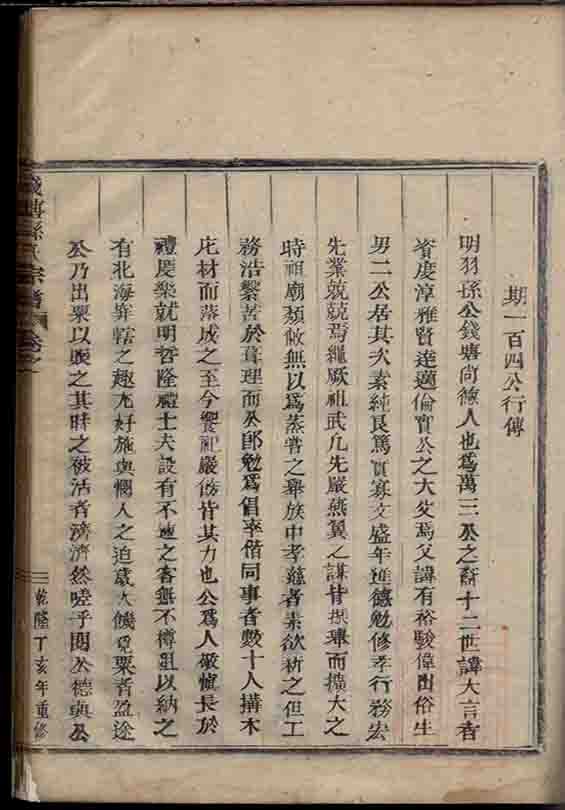 期一百四公行傳
明羽孫公錢塘尚德人也爲萬三公之裔十二世諱大言者
資度淳雅賢達邁倫實公之大父焉父諱有裕駿偉出俗生
男二公居其次素純良篤實寡文盛年進德勉修孝行務宏
先業兢兢焉繩厥祖武凡先嚴燕翼之謀皆振舉而擴大之
時祖廟頹敝無以爲蒸嘗之舉族中孝慈者素欲新之但工
務浩繁苦於葺理而公郎勉爲倡率偕同事者數十人搆木
庀材而落成之至今饗祀嚴俻皆其力也公爲人敬慎長於
禮慶樂就明哲隆禮士夫設有不速之客無不樽俎以納之
有北海 轄之趣尤好施與憫人之迫歲大饑覓粟者盈途
公乃出粟以賑之其時之被活者濟濟然嗟乎閱公德與公
孫氏宗譜
乾隆丁亥年重修